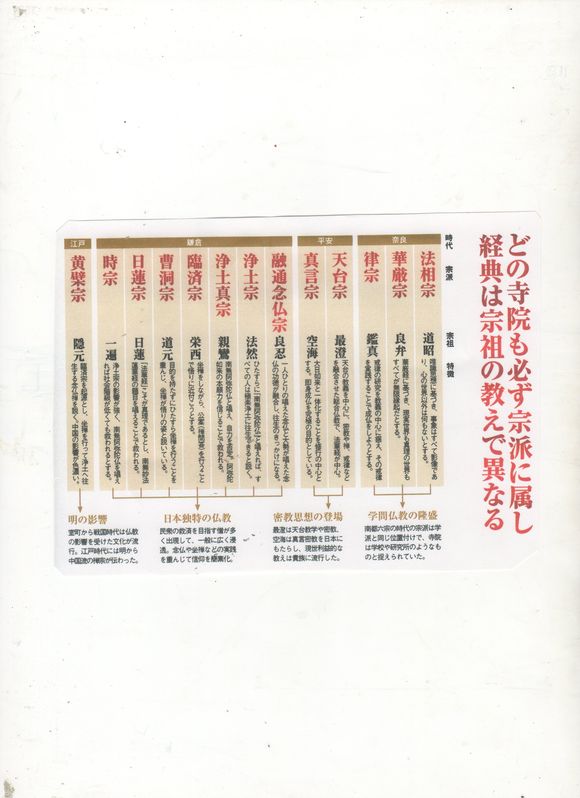 どの寺院も必ず宗派に属し
経典は宗祖の教えで異なる
時代 宗派 宗祖 特徴
奈良
法相宗 道昭
唯識思想に基づき、事象はすべて幻像であ
り、心の世界以外は何もないとする。
華厳宗 良弁
華厳経に基づき、現実世界も真理の世界も
すべてが無限縁起だとする。
律宗 鑑真
戒律の研究を教義の中心に据え、その戒律
を実践することで成仏をしようとする。
平安
天台宗 最澄
天台の教義を中心に、密教や禅、戒律など
を融合させた総合仏教で、法華経が中心。
真言宗 空海
大日如来と一体化することを修行の中心と
する。即身成仏を究極の目的としている。
鎌倉
融通念仏宗 良忍
一人ひとりの唱えた念仏と大勢が唱えた念
仏の功徳が融合し、往生のきっかけになる。
浄土宗 法然
ひたすらに「南無阿弥陀仏」と唱えれば、す
べての人は極楽浄土に往生できると説く。
浄土真宗 親鸞
南無阿弥陀仏と唱え、自力を否定。阿弥陀
如来の本願力を信じることで救われる。
臨済宗 栄西
坐禅をしながら、公案(禅問答)を行うこと
で悟りに近付こうとする。
曹洞宗 道元
目的を持たずにひたすら坐禅を行うことを
重んじ、坐禅が悟りの姿と説いている。
日蓮宗 日蓮
「法華経」こそが真理であるとし、南無妙法
蓮華経の題目を唱えることで救われる。
時宗 一遍
浄土宗の影響が強く、南無阿弥陀仏を唱え
れば社会階級が低くても救われるとする。
江戸
黄檗宗 隠元
臨済宗を起源とし、坐禅を行って浄土へ往
生する念仏禅を説く。中国の影響が色濃い。
学問仏教の隆盛
南都六宗の時代の宗派は学
派と同じ位置付けで、寺院
は学校や研究所のようなも
のと捉えられていた。
密教思想の登場
最澄は天台教学や密教、
空海は真言密教を日本に
もたらし、現世利益的な
教えは貴族に流行した。
日本独特の仏教
民衆の救済を目指す僧が多
く出現して、一般に広く浸
透。念仏や坐禅などの実践
を重んじて信仰を簡素化。
明の影響
室町から戦国時代は仏教
の影響を受けた文化が流
行。江戸時代には明から
中国流の禅宗が伝わった。